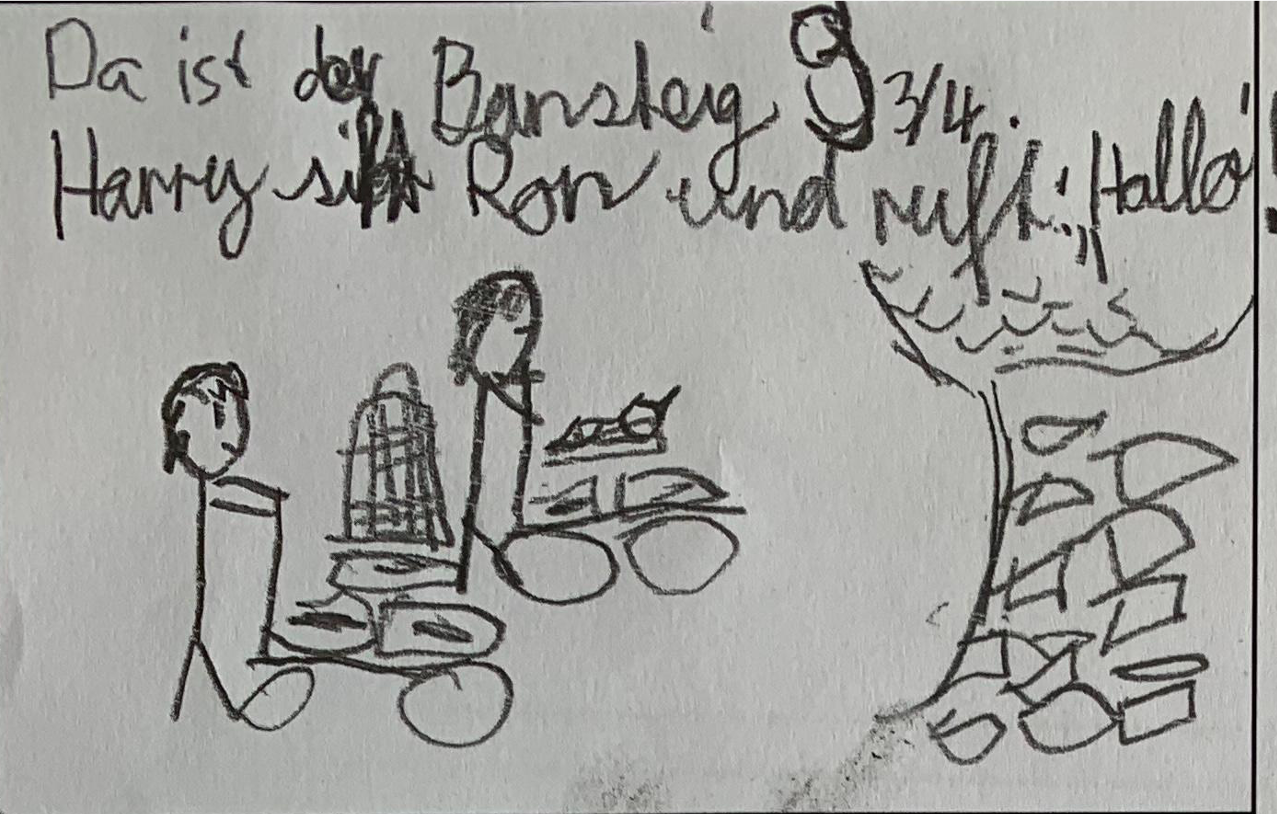 Da ist der Bansteig 9 3/4.
Harry siht Ron und ruft: „Hallo!